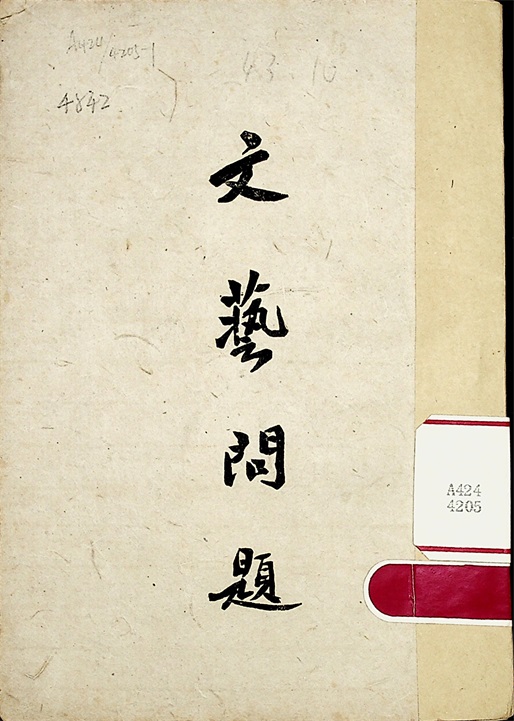 A424/4205-1
4842
43.10
文藝問題
A424
4205